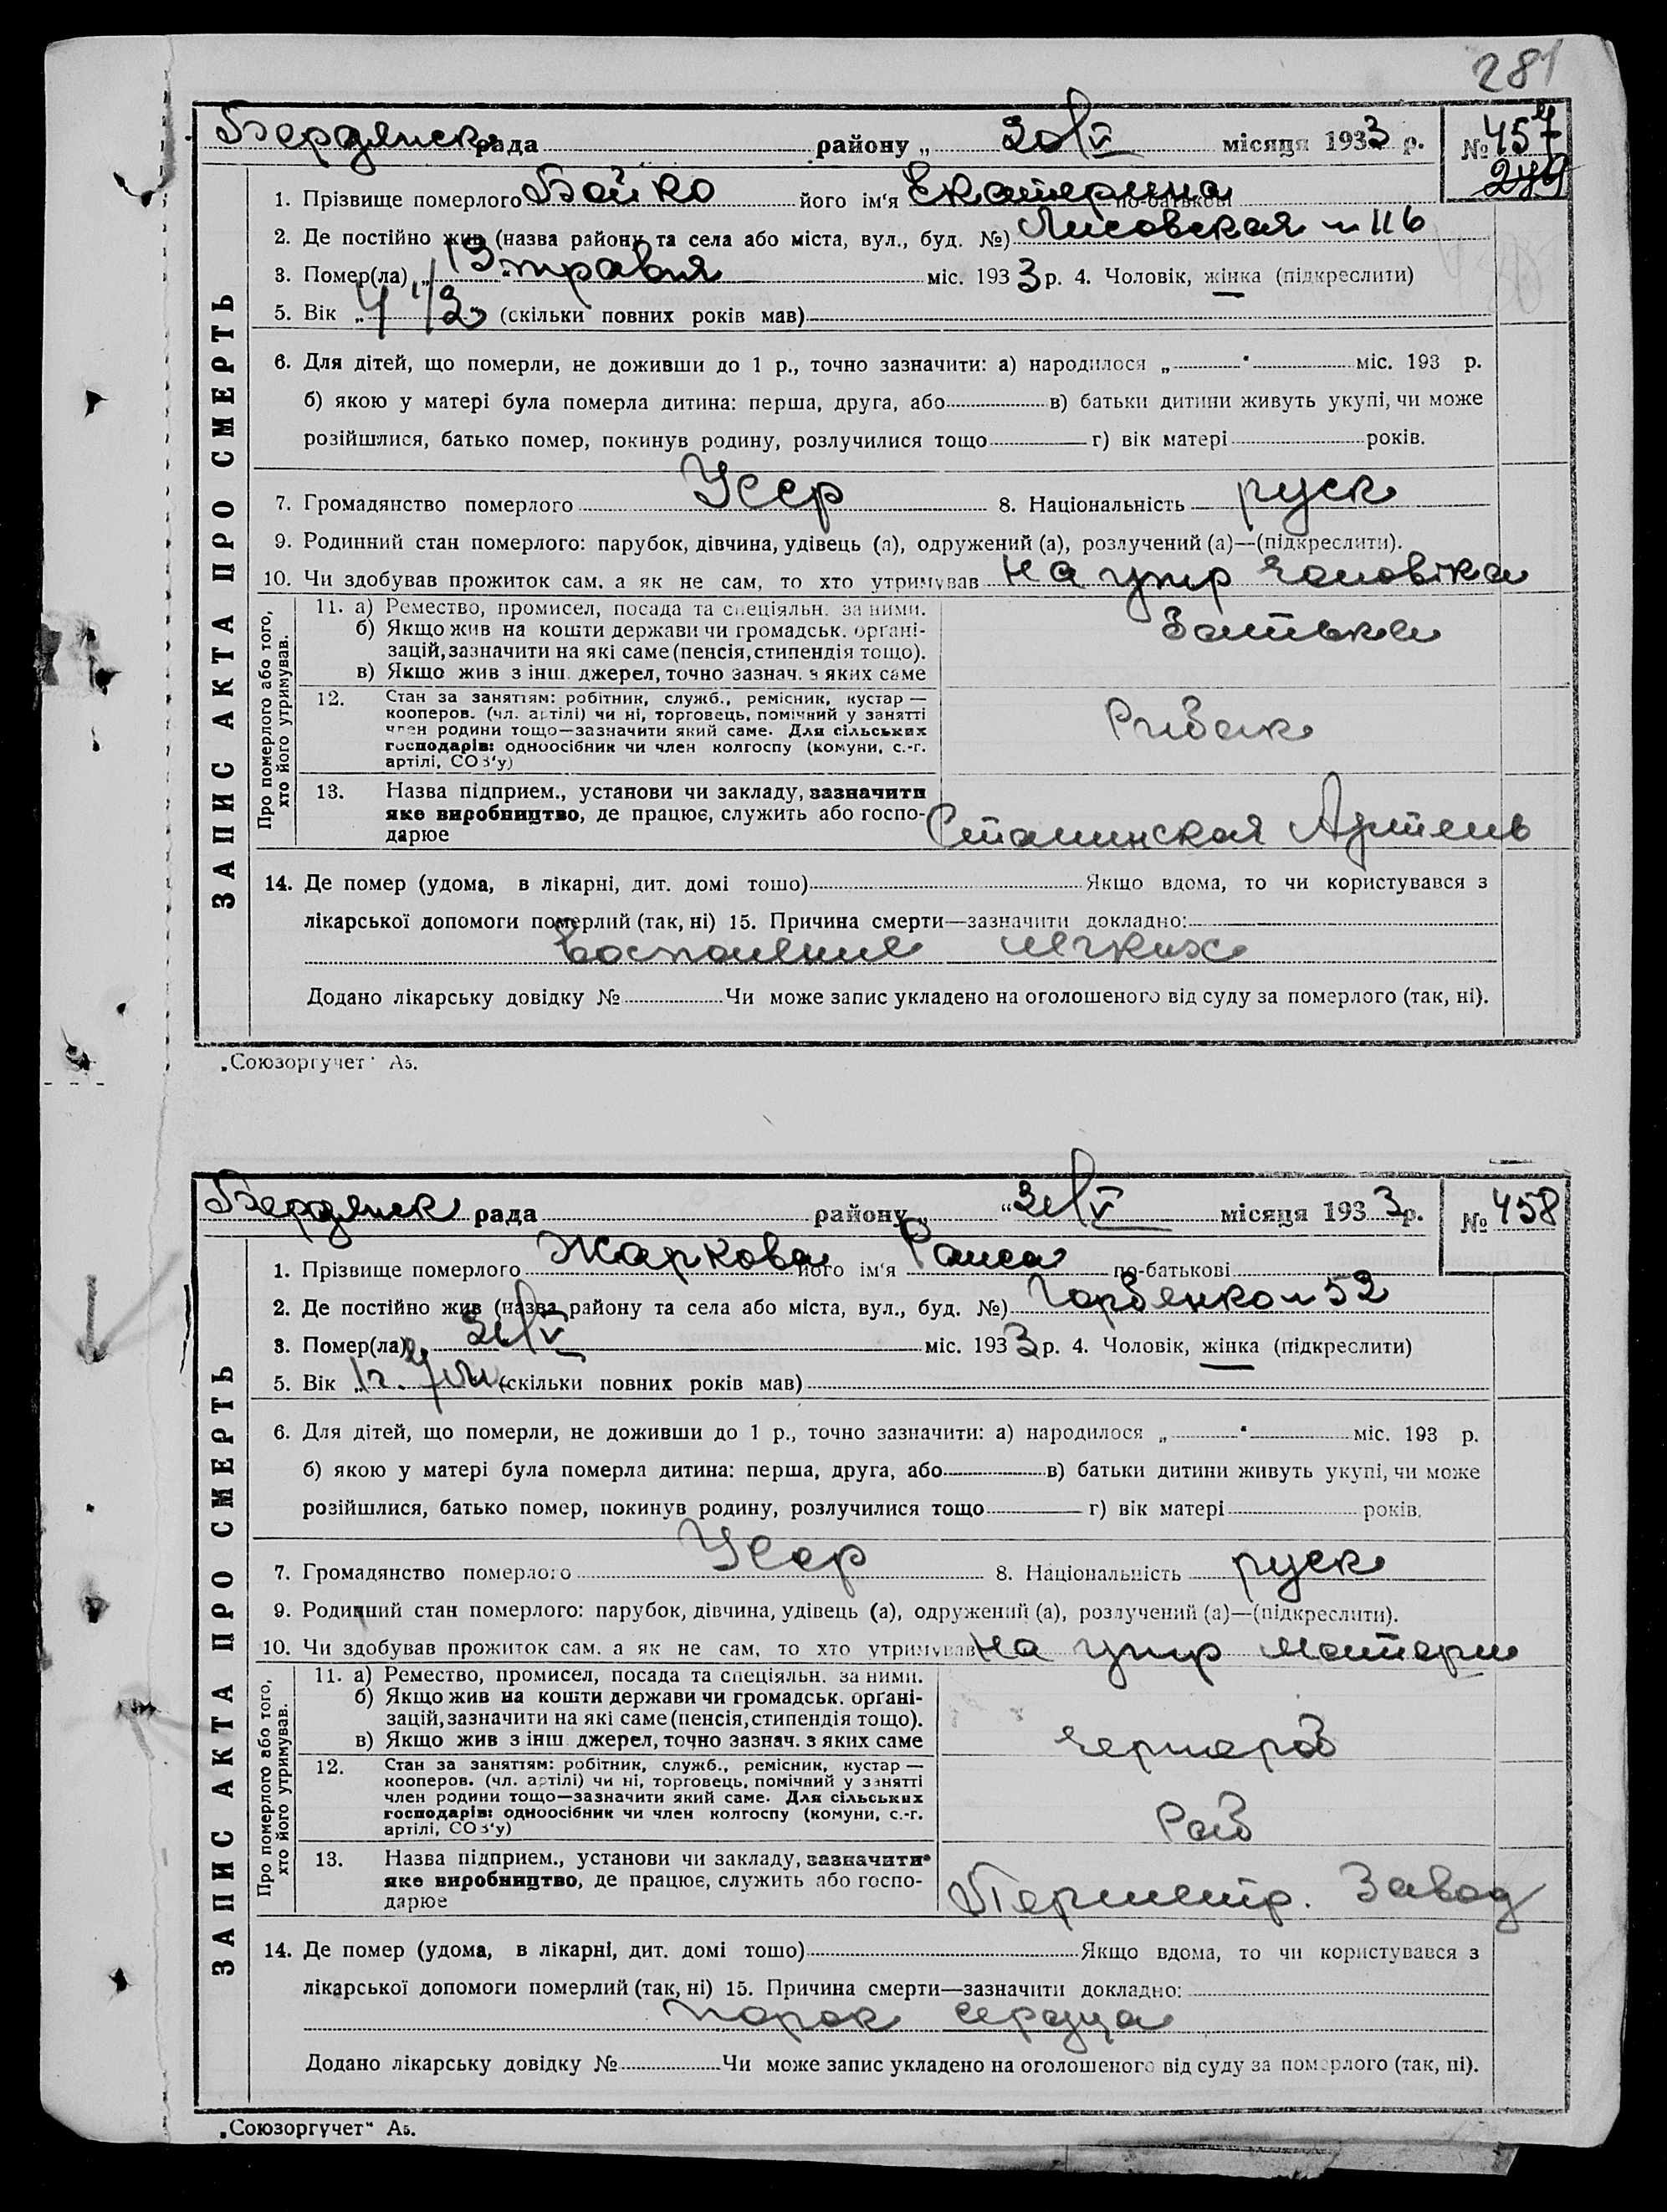 281
Бердянск рада района „ 20/V місяця 1933 р. № 457
249
1. Прізвище померлого Бойко його ім'я Екатерина по-батькові
2. Де постійно жив (назва району та села або міста, вул., буд. №) Лисовская № 116
3. Помер(ла) „ 19 травня міс. 1933 р. 4. Чоловік, жінка (підкреслити)
5. Вік „ 4 1/2 “ (скільки повних років мав)
6. Для дітей, що померли, не доживши до 1 р., точно зазначити: а) народилося „ “ міс. 193 р.
б) якою у матері була померла дитина: перша, друга, або в) батьки дитини живуть укупі, чи може
розійшлися, батько помер, покинув родину, розлучилися тощо г) вік матері років.
7. Громадянство померлого Усср 8. Національність руск
9. Родинний стан померлого: парубок, дівчина, удівець (а), одружений (а), розлучений (а)—(підкреслити).
10. Чи здобував прожиток сам, а як не сам, то хто утримував на утр
ЗАПИС АКТА ПРО СМЕРТЬ
Про померлого або того, хто його утримував.
11. а) Ремество, промисел, посада та спеціяльн. за ними.
б) Якщо жив на кошти держави чи громадськ. органі-
зацій, зазначити на які саме (пенсія, стипендія тощо). Батька
в) Якщо жив з інш. джерел, точно зазнач. з яких саме
12. Стан за заняттям: робітник, служб., ремісник, кустар —
кооперов. (чл. артілі) чи ні, торговець, помічний у занятті Рибак
член родини тощо—зазначити який саме. Для сільських
господарів: одноосібник чи член колгоспу (комуни, с.-г.
артілі, СОЗ'у)
13. Назва підприєм., установи чи закладу, зазначити
яке виробництво, де працює, служить або госпо- Сталинская Артель
дарює
14. Де помер (удома, в лікарні, дит. домі тощо) Якщо вдома, то чи користувався з
лікарської допомоги померлий (так, ні) 15. Причина смерти—зазначити докладно:
воспаление легких
Додано лікарську довідку № Чи може запис укладено на оголошеного від суду за померлого (так, ні).
„Союзоргучет“ А5.
Бердянск рада району „ “ 21/V місяця 1933 р. № 458
1. Прізвище померлого Жаркова його ім'я Раиса по-батькові
2. Де постійно жив (назва району та села або міста, вул., буд. №) Горбенко № 52
3. Помер(ла) „ 21/V міс. 1933 р. 4. Чоловік, жінка (підкреслити)
5. Вік „ 1 г. (скільки повних років мав)
6. Для дітей, що померли, не доживши до 1 р., точно зазначити: а) народилося „ “ міс. 193 р.
б) якою у матері була померла дитина: перша, друга, або в) батьки дитини живуть укупі, чи може
розійшлися, батько помер, покинув родину, розлучилися тощо г) вік матері років.
7. Громадянство померлого Усср 8. Національність руск
9. Родинний стан померлого: парубок, дівчина, удівець (а), одружений (а), розлучений (а)—(підкреслити).
10. Чи здобував прожиток сам, а як не сам, то хто утримував на утр матери
ЗАПИС АКТА ПРО СМЕРТЬ
Про померлого або того, хто його утримував.
11. а) Ремество, промисел, посада та спеціяльн. за ними.
б) Якщо жив на кошти держави чи громадськ. органі-
зацій, зазначити на які саме (пенсія, стипендія тощо).
в) Якщо жив з інш. джерел, точно зазнач. з яких саме чернороб
12. Стан за заняттям: робітник, служб., ремісник, кустар —
кооперов. (чл. артілі) чи ні, торговець, помічний у занятті
член родини тощо—зазначити який саме. Для сільських
господарів: одноосібник чи член колгоспу (комуни, с.-г. Раб
артілі, СОЗ'у)
13. Назва підприєм., установи чи закладу, зазначити
яке виробництво, де працює, служить або госпо- Завод
дарює
14. Де помер (удома, в лікарні, дит. домі тощо) Якщо вдома, то чи користувався з
лікарської допомоги померлий (так, ні) 15. Причина смерти—зазначити докладно:
порок сердца
Додано лікарську довідку № Чи може запис укладено на оголошеного від суду за померлого (так, ні).
„Союзоргучет“ А5.